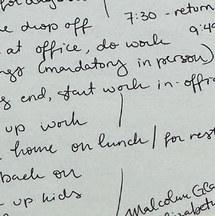 for day
7:30 - return
e drop off
9:4
at office, do work
ngs (mandatory in person)
g end, start work in-offi
up work
home on lunch / for rest
back on
up kids
Malcolm Gla